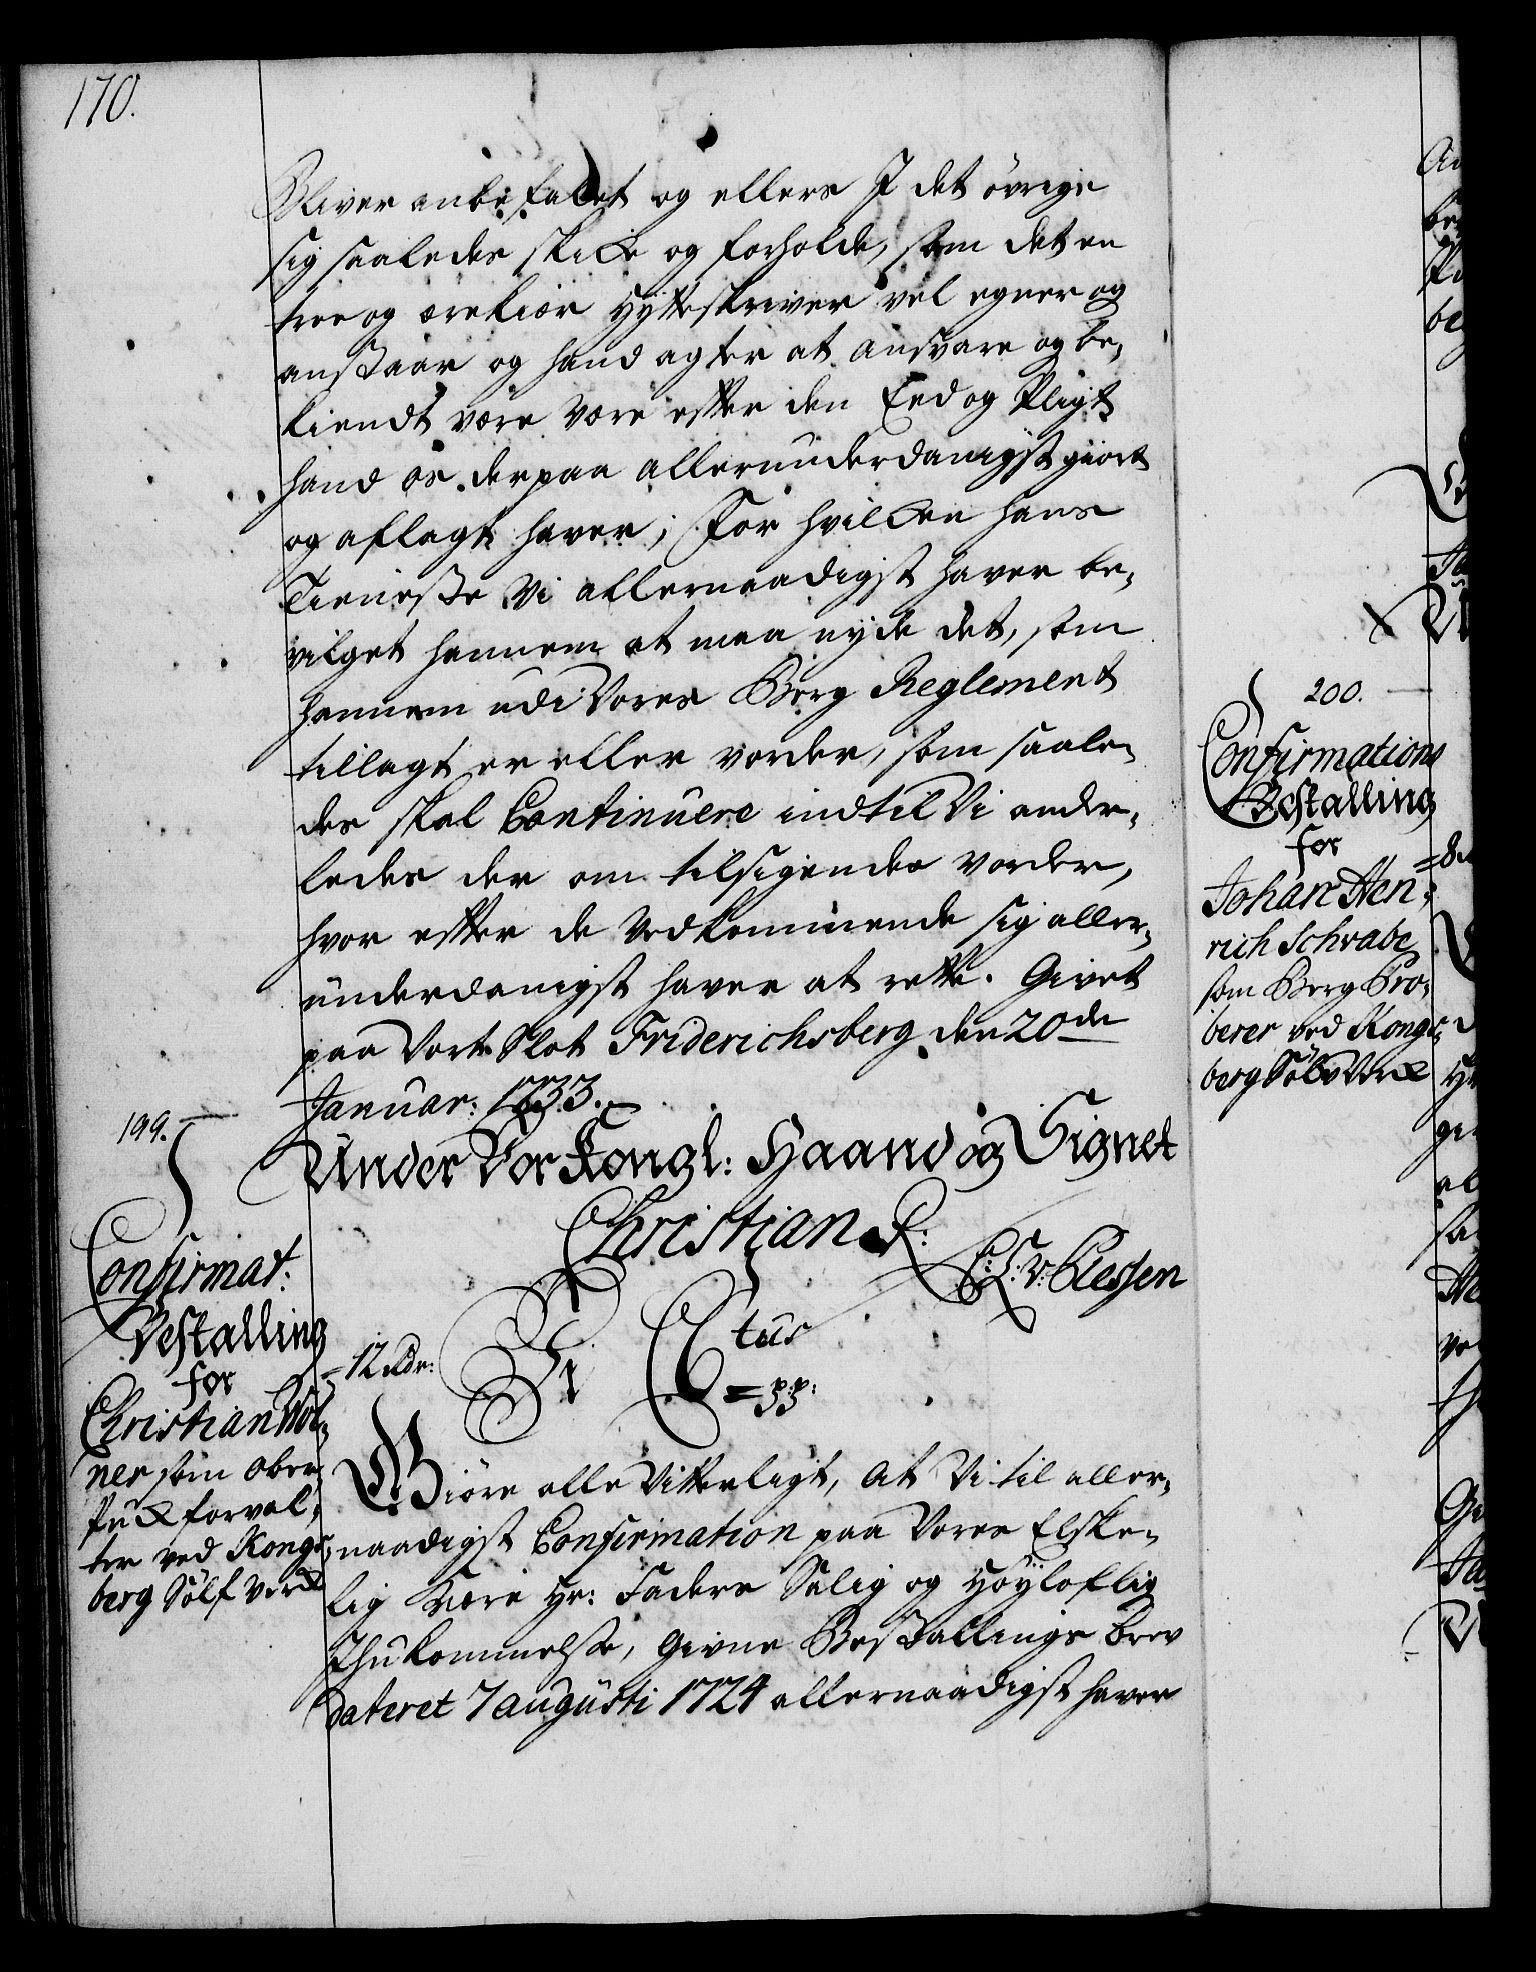 170.
Bliver anbefalet og ellers J det övrige
sig saaledes skicke og forholde, som det en
troe og ærekiær Hytteskriver vel egner og
anstaar og hand agter at ansvare og be,
kiendt være være efter den Eed og Pligt
hand os derpaa allerunderdanigst giort
og aflagt haver; For hvilken hans
Tieneste Vi allernaadigst haver be,
vilget hannem at maa nyde det, som
hannem udi Vores Berg Reglement
tillagt er eller vorder, som saale,
des skal Continuere indtil Vi ander,
ledes der om tilsigendes vorder,
hvor efter de Vedkommende sig aller,
underdanigst haver at rette. Givet
paa Vort Slot Friderichsberg den 20de
Januar: 1733.
Under Vor Kongl: Haand og Signet
Christian R:
C: S: v: Plessen
199.
Confirmat:
Bestalling
for
Christian Wöl,
ner som Ober
Puckforval,
ter ved Kongs,
berg Sölf Verck
=12 Rdr:
Vi C6tus
=pp:
Giöre alle Vitterligt, At Vi til aller,
naadigst Confirmation paa Vores Elske,
lig Kiære Hr: Faders Salig og Höyloflig
Jhukommelse, Givne Bestallings brev
dateret 7 augusti 1724 allernaadigst haver
200.
Confirmations
Bestalling
for
Johan Hen,
rich Schrabe
som Berg Pro,
berer ved Kongs,
berg Sölv Verck